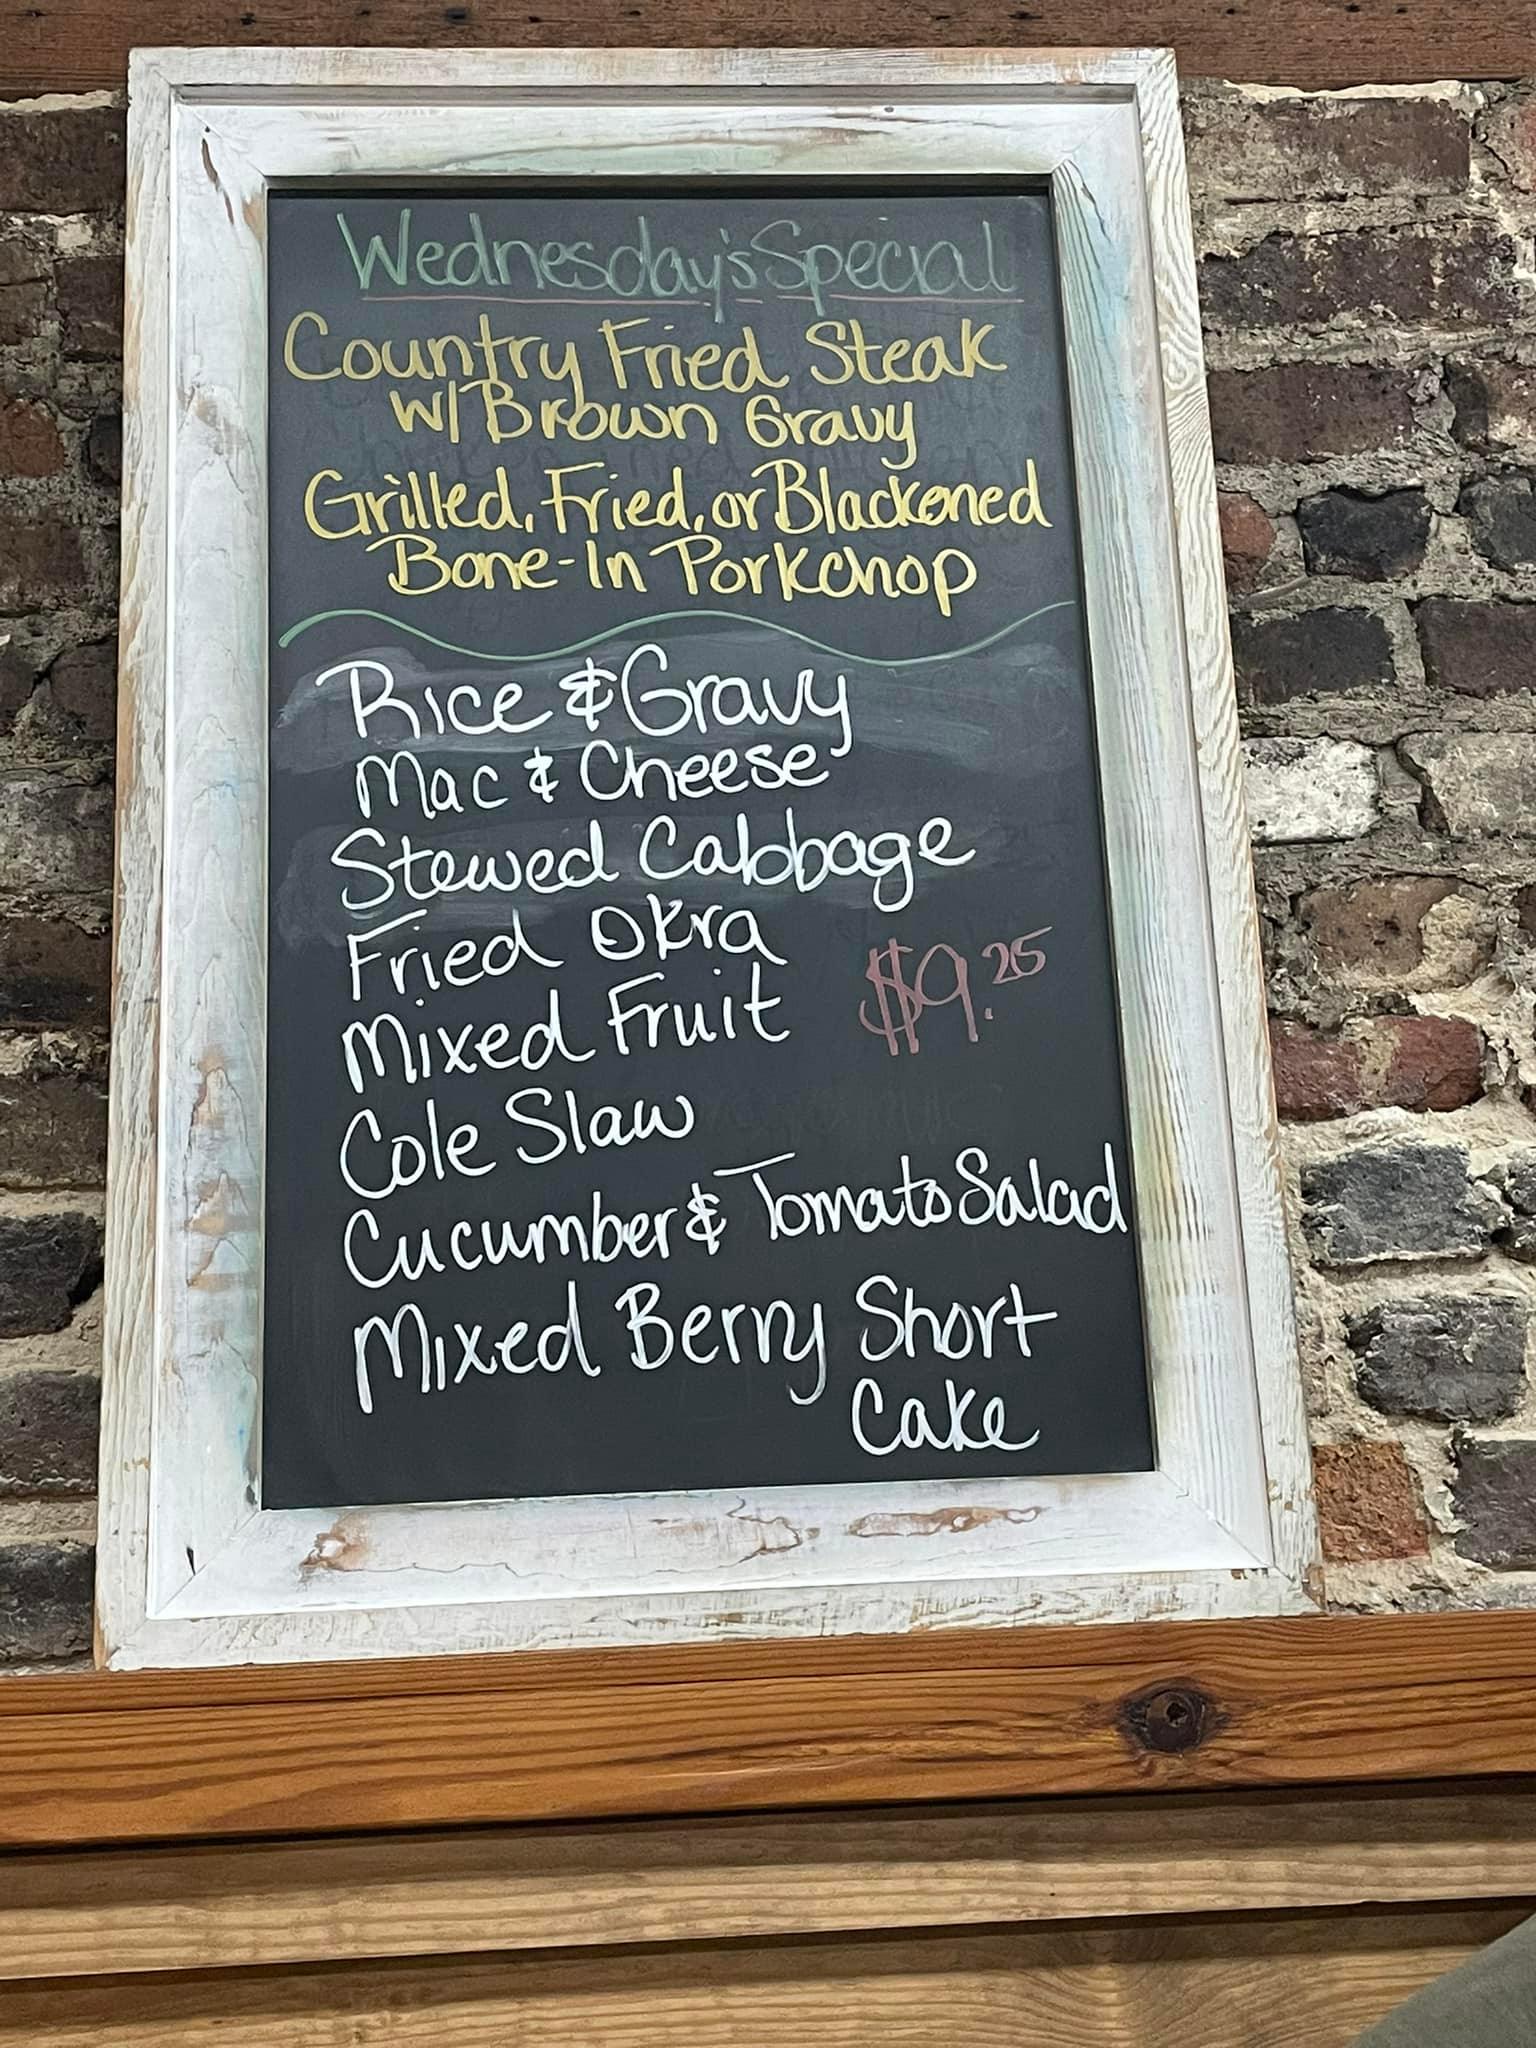 Wednesday's Special
Country Fried Steak
w/ Brown Gravy
Grilled, Fried, or Blackened
Bone-In Porkchop
Rice & Gravy
Mac & Cheese
Stewed Cabbage
Fried Okra
Mixed Fruit
$9.25
Cole Slaw
Cucumber & Tomato Salad
Mixed Berry Short
Cake